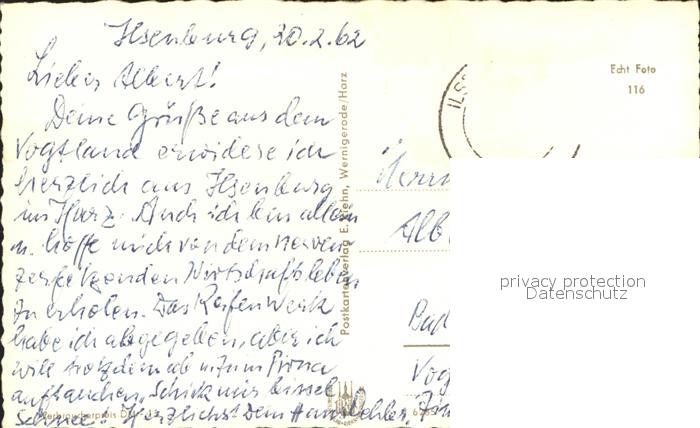 Ilsenburg, 20.2.62
Lieber Albert!
Deine Grüße aus dem
Vogtland erwidere ich
herzlich aus Ilsenburg
im Harz. Auch ich bin allein
u. hoffe mich von dem nerven
zerfetzenden Wirtschaftsleben
zu erholen. Das Reifenwerk
habe ich abgegeben, aber ich
will trotzdem ab u. zu in Pirna
auftauchen. Schick mir bissel
Schnee! Herzlichst Dein Hans
Postkartenverlag E. Riehn, Wernigerode/Harz
Echt Foto
116
ILS
Herrn
Alb
Bad
Vog
privacy protection
Datenschutz